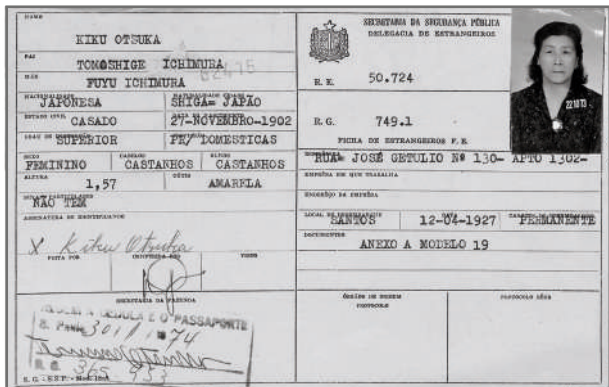 NOME
KIKU OTSUKA
PAI
TOMOSHIGE ICHIMURA
MÃE
FUYU ICHIMURA
NACIONALIDADE
JAPONESA SHIGA= JAPÃO
ESTADO CIVIL
CASADO 27-NOVEMBRO-1902
SUPERIOR PE/ DOMESTICAS
SEXO CABELOS OLHOS
FEMININO CASTANHOS CASTANHOS
ALTURA CÚTIS
1,57 AMARELA
NÃO TEM
ASSINATURA DO IDENTIFICADO
X Kiku Otsuka
FEITA POR CONFERIDA POR VISTO
SECRETARIA DA FAZENDA
CEDULA E O PASSAPORTE
S. Paulo 74
R. G. 365 953
SECRETARIA DA SEGURANÇA PÚBLICA
DELEGACIA DE ESTRANGEIROS
R. E. 50.724
R. G. 749.1
FICHA DE ESTRANGEIROS F. E.
RUA= JOSÉ GETULIO Nº 130- APTO 1302-
EMPRÊSA EM QUE TRABALHA
ENDERÊÇO DA EMPRÊSA
LOCAL DE DESEMBARQUE DATA
SANTOS 12-04-1927 PERMANENTE
DOCUMENTOS
ANEXO A MODELO 19
ÓRGÃOS DE ORIGEM
PROTOCOLO
PROTOCOLO